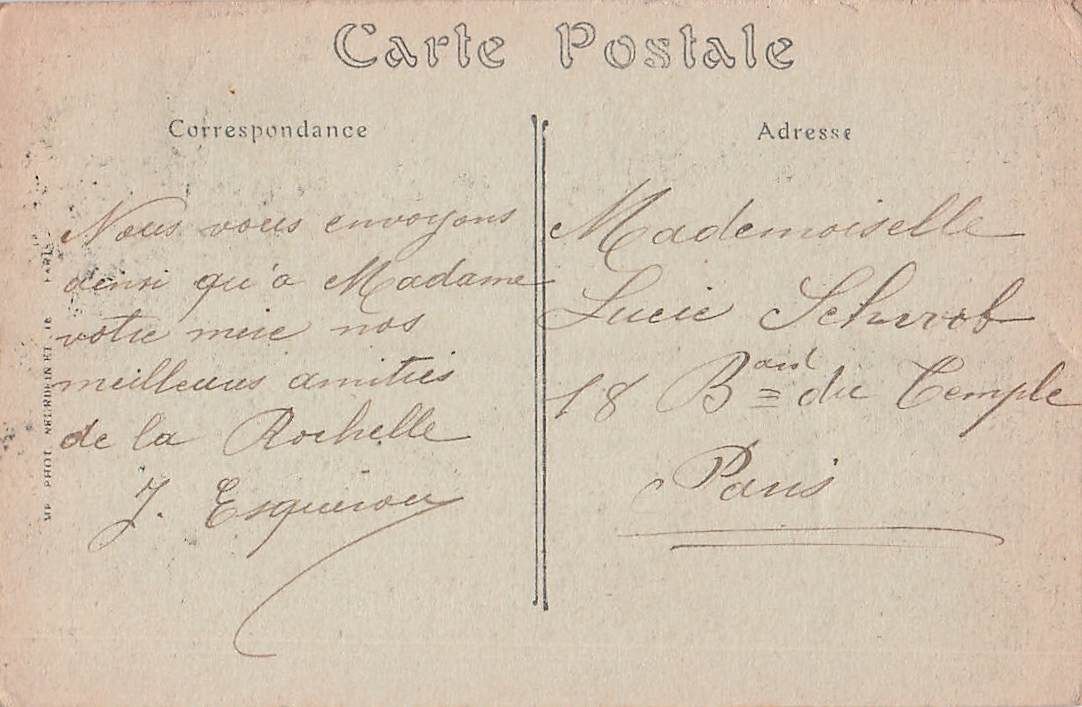 Carte Postale
Correspondance
Nous vous envoyons
ainsi qu'a Madame
votre mere nos
meilleurs amitiés
de la Rochelle
J.
Adresse
Mademoiselle
Lucie
18 Bard du Temple
Paris
IMP. PHOT. NEURDEIN ET CIE PARIS